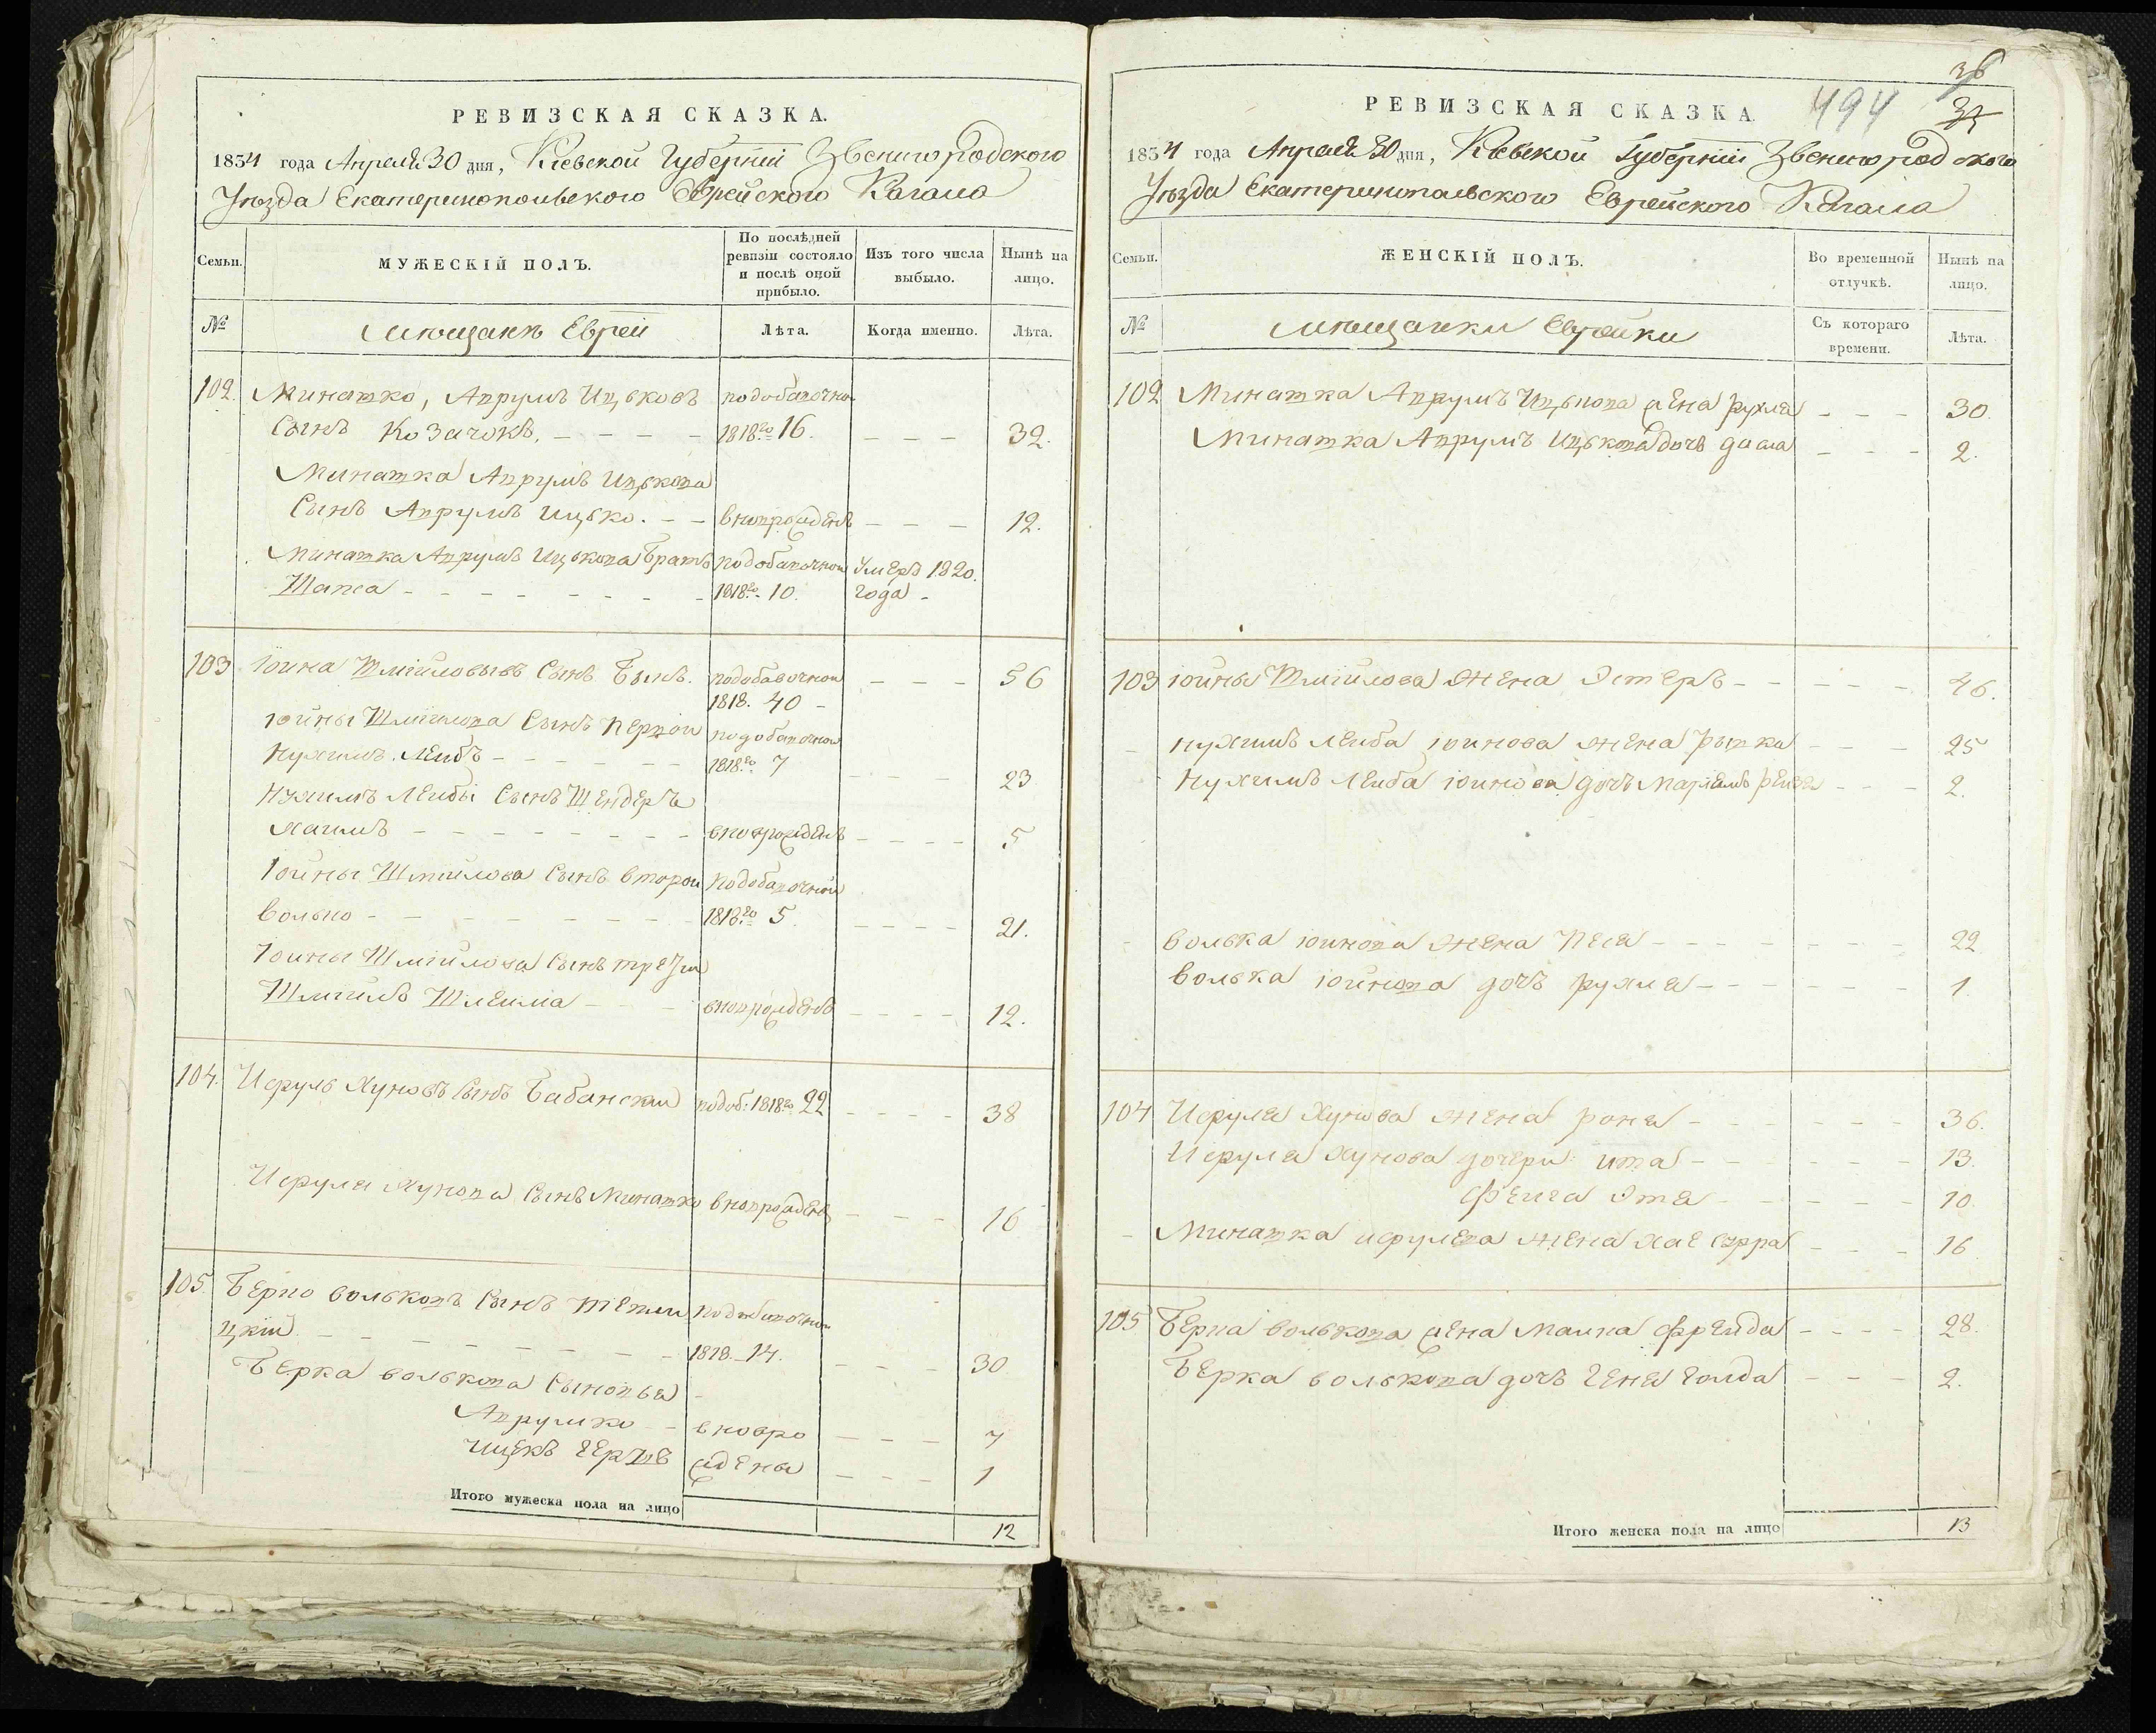 РЕВИЗСКАЯ СКАЗКА.
1834 года Апреля 30 дня, Кіевской Губерніи Звенигородского
Уѣзда Екатеринопольского Еврейского Кагала
Семьи.
МУЖЕСКІЙ ПОЛЪ.
По послѣдней ревизіи состояло и послѣ оной прибыло.
Изъ того числа выбыло.
Нынѣ на лицо.
№
Мещанъ Еврей
Лѣта.
Когда именно.
Лѣта.
102. Минашко, Аврумъ Ицьковъ подобавочной
Сынъ Козачокъ. 1818го 16. 32.
Минашка Аврумъ Ицькова
Сынъ Аврумъ Ицько. вноврожденъ 12.
Минашка Аврумъ Ицькова братъ подобавочной Умеръ 1820.
1818го 10. года
103 Іойна Шмійловывъ Сынъ подобавочной 56
1818. 40
Іойны Шмійлова Сынъ первой подобавочной
Нухимъ. Лейбъ 1818го 7 23
Нухимъ Лейбы Сынъ Шендеръ
Хаимъ вноврожденъ 5
Іойны Шмійлова Сынъ второй подобавочной
Волько 1818го 5. 21.
Іойны Шмійлова Сынъ третій
Шмійлъ Шлейма вноврожденъ 12.
104. Исруль Хуновъ Сынъ Бабанский подоб: 1818го 22 38
Исруля Хунова Сынъ Минашко вноврожденъ 16
105. Берко Вольковъ Сынъ подобавочной
цкій 1818. 14. 30
Берка Волькова Сыновья
Аврумко вновро 7
Ицекъ Гершъ жденъ 1
Итого мужеска пола на лицо 12
36
494
РЕВИЗСКАЯ СКАЗКА.
1834 года Апреля 30 дня, Кіевской Губерніи Звенигородского
Уѣзда Екатеринопольского Еврейского Кагала
Семьи.
ЖЕНСКІЙ ПОЛЪ.
Во временной отлучкѣ.
Нынѣ на лицо.
№
Мещанки Еврейки
Съ котораго времени.
Лѣта.
102 Минашка Аврумъ Ицькова жена Рухля 30.
Минашка Аврумъ Ицькова дочь 2.
103 Іойны Шмійлова жена Эстеръ 46.
Нухимъ Лейба Іойнова жена Рывка 25
Нухимъ Лейба Іойнова дочь Маріемъ Рейза 2.
Волька Іойнова жена Песя 22
Волька Іойнова дочъ Рухля 1.
104 Исруля Хунова жена Роня 36.
Исруля Хунова дочери: Ита 13.
Фейга Этя 10
Минашка Исрулева жена Хае Сурра 16
105 Берка Волькова жена Малка Фрейда 28.
Берка Волькова дочъ Геня Голда 2.
Итого женска пола на лицо 13